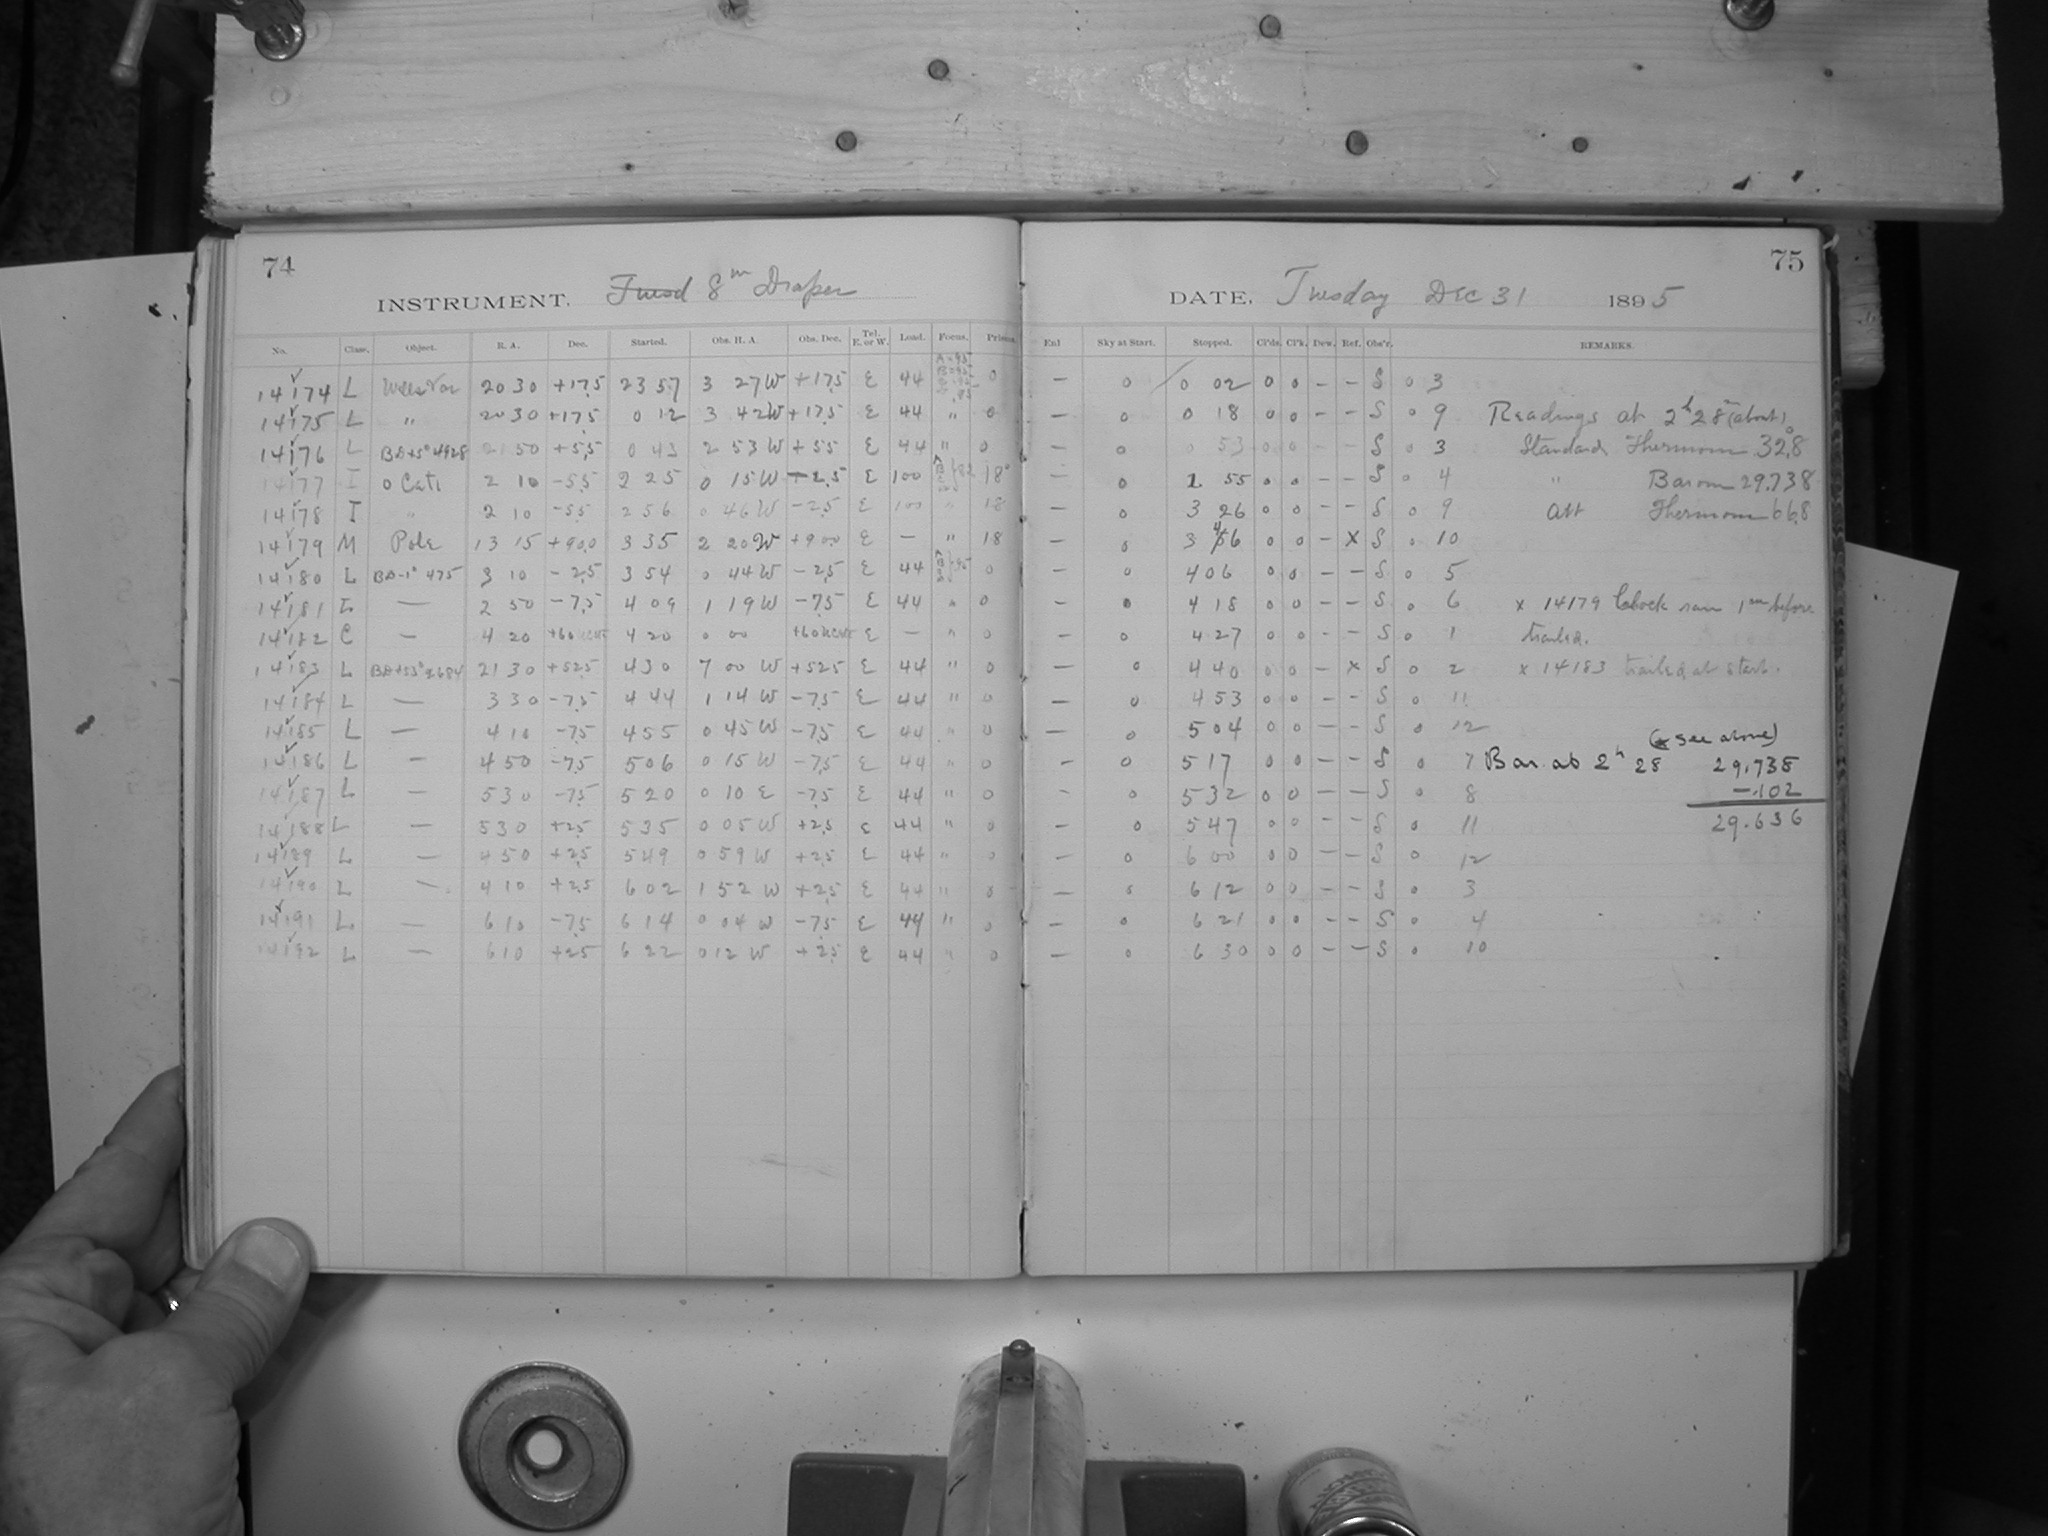 74
INSTRUMENT. 8 in Draper
No. Class. Object. R. A. Dec. Started. Obs. H. A. Obs. Dec. Tel. E. or W. Load. Focus. Prisms
14174 L Wells Var 20 30 +17.5 23 57 3 27 W +17.5 E 44 0
14175 L " 20 30 +17.5 0 12 3 42 W +17.5 E 44 " 0
14176 L BD+5° 4928 21 50 +5.5 0 43 2 53 W +5.5 E 44 " 0
14177 I o Ceti 2 10 -5.5 2 25 0 15 W -2.5 E 100 18°
14178 I " 2 10 -5.5 2 56 0 46 W -2.5 E 100 " 18
14179 M Pole 13 15 +90.0 3 35 2 20 W +90.0 E — " 18
14180 L BD-1° 475 3 10 -2.5 3 54 0 44 W -2.5 E 44 0
14181 L — 2 50 -7.5 4 09 1 19 W -7.5 E 44 " 0
14182 C — 4 20 +60 4 20 0 00 +60 E — " 0
14183 L 21 30 +52.5 4 30 7 00 W +52.5 E 44 " 0
14184 L — 3 30 -7.5 4 44 1 14 W -7.5 E 44 " 0
14185 L — 4 10 -7.5 4 55 0 45 W -7.5 E 44 " 0
14186 L — 4 50 -7.5 5 06 0 15 W -7.5 E 44 " 0
14187 L — 5 30 -7.5 5 20 0 10 E -7.5 E 44 " 0
14188 L — 5 30 +2.5 5 35 0 05 W +2.5 E 44 " 0
14189 L — 4 50 +2.5 5 49 0 59 W +2.5 E 44 " 0
14190 L — 4 10 +2.5 6 02 1 52 W +2.5 E 44 " 0
14191 L — 6 10 -7.5 6 14 0 04 W -7.5 E 44 " 0
14192 L — 6 10 +2.5 6 22 0 12 W +2.5 E 44 " 0
75
DATE. Tuesday Dec 31 1895
Enl Sky at Start. Stopped. Cl'ds. Cl'k. Dew. Ref. Obs'r. REMARKS.
— 0 0 02 0 0 – – S 0 3
— 0 0 18 0 0 – – S 0 9 Readings at 2h 28m (about)
— 0 0 53 0 0 – – S 0 3 Standard Thermom 32.8°
— 0 2 55 0 0 – – S 0 4 " Barom 29.738
— 0 3 26 0 0 – – S 0 9 Att Thermom 66.8
— 0 3 46 0 0 – x S 0 10
— 0 4 06 0 0 – – S 0 5
— 0 4 18 0 0 – – S 0 6 x 14179 Clock ran 1m before
— 0 4 27 0 0 – – S 0 1 trailed.
— 0 4 40 0 0 – x S 0 2 x 14183 trailed at start.
— 0 4 53 0 0 – – S 0 11
— 0 5 04 0 0 – – S 0 12
(see above)
— 0 5 17 0 0 – – S 0 7 Bar. at 2h 28 29.738
— 0 5 32 0 0 – – S 0 8 -.102
— 0 5 47 0 0 – – S 0 11 29.636
— 0 6 00 0 0 – – S 0 12
— 0 6 12 0 0 – – S 0 3
— 0 6 21 0 0 – – S 0 4
— 0 6 30 0 0 – – S 0 10